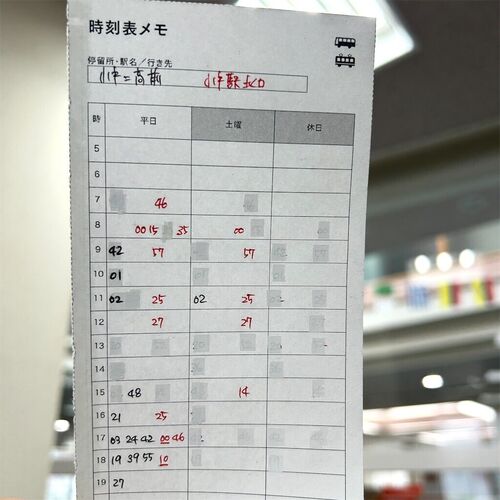 時刻表メモ
停留所・駅名／行き先
小平二高前 小平駅北口
時 平日 土曜 休日
5
6
7 46
8 00 15 35 00
9 42 57 57
10 01
11 02 25 02 25
12 27 27
13
14
15 48 14
16 21 25
17 03 24 42 00 46
18 19 39 55 10
19 27